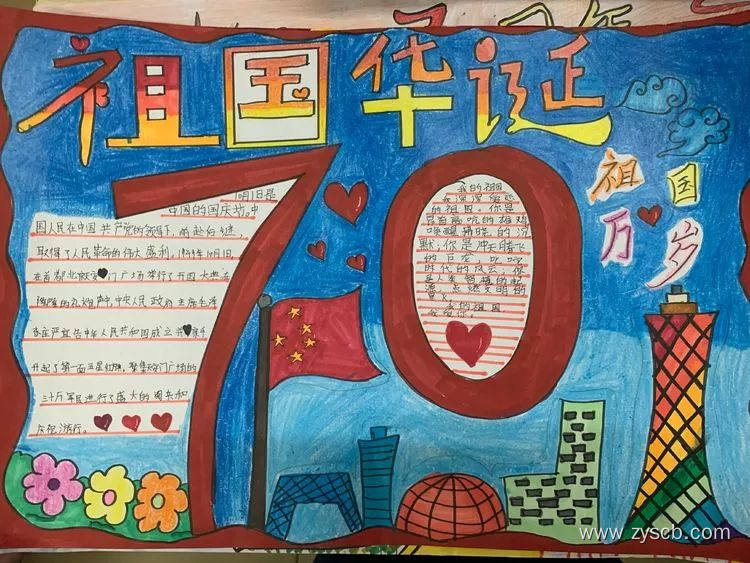 祖国华诞
70
祖国
万岁
10月1日是
中国的国庆节。中
国人民在中国共产党的领导下,前赴后继,
取得了人民革命的伟大胜利,1949年10月1日,
在首都北京天门广场举行了开国大典,在
隆隆的礼炮声中,中央人民政府主席毛泽
东庄严宣告中华人民共和国成立并
升起了第一面五星红旗,聚集天安门广场的
三十万军民进行了盛大的阅兵和
庆祝游行。
我的祖国
我深深
的祖国。你是
的沉
默;你是冲天腾飞
的巨龙,
时代的风云;你
是人类智慧的
,点燃文明的
星火
我的祖国
www.zyscb.com